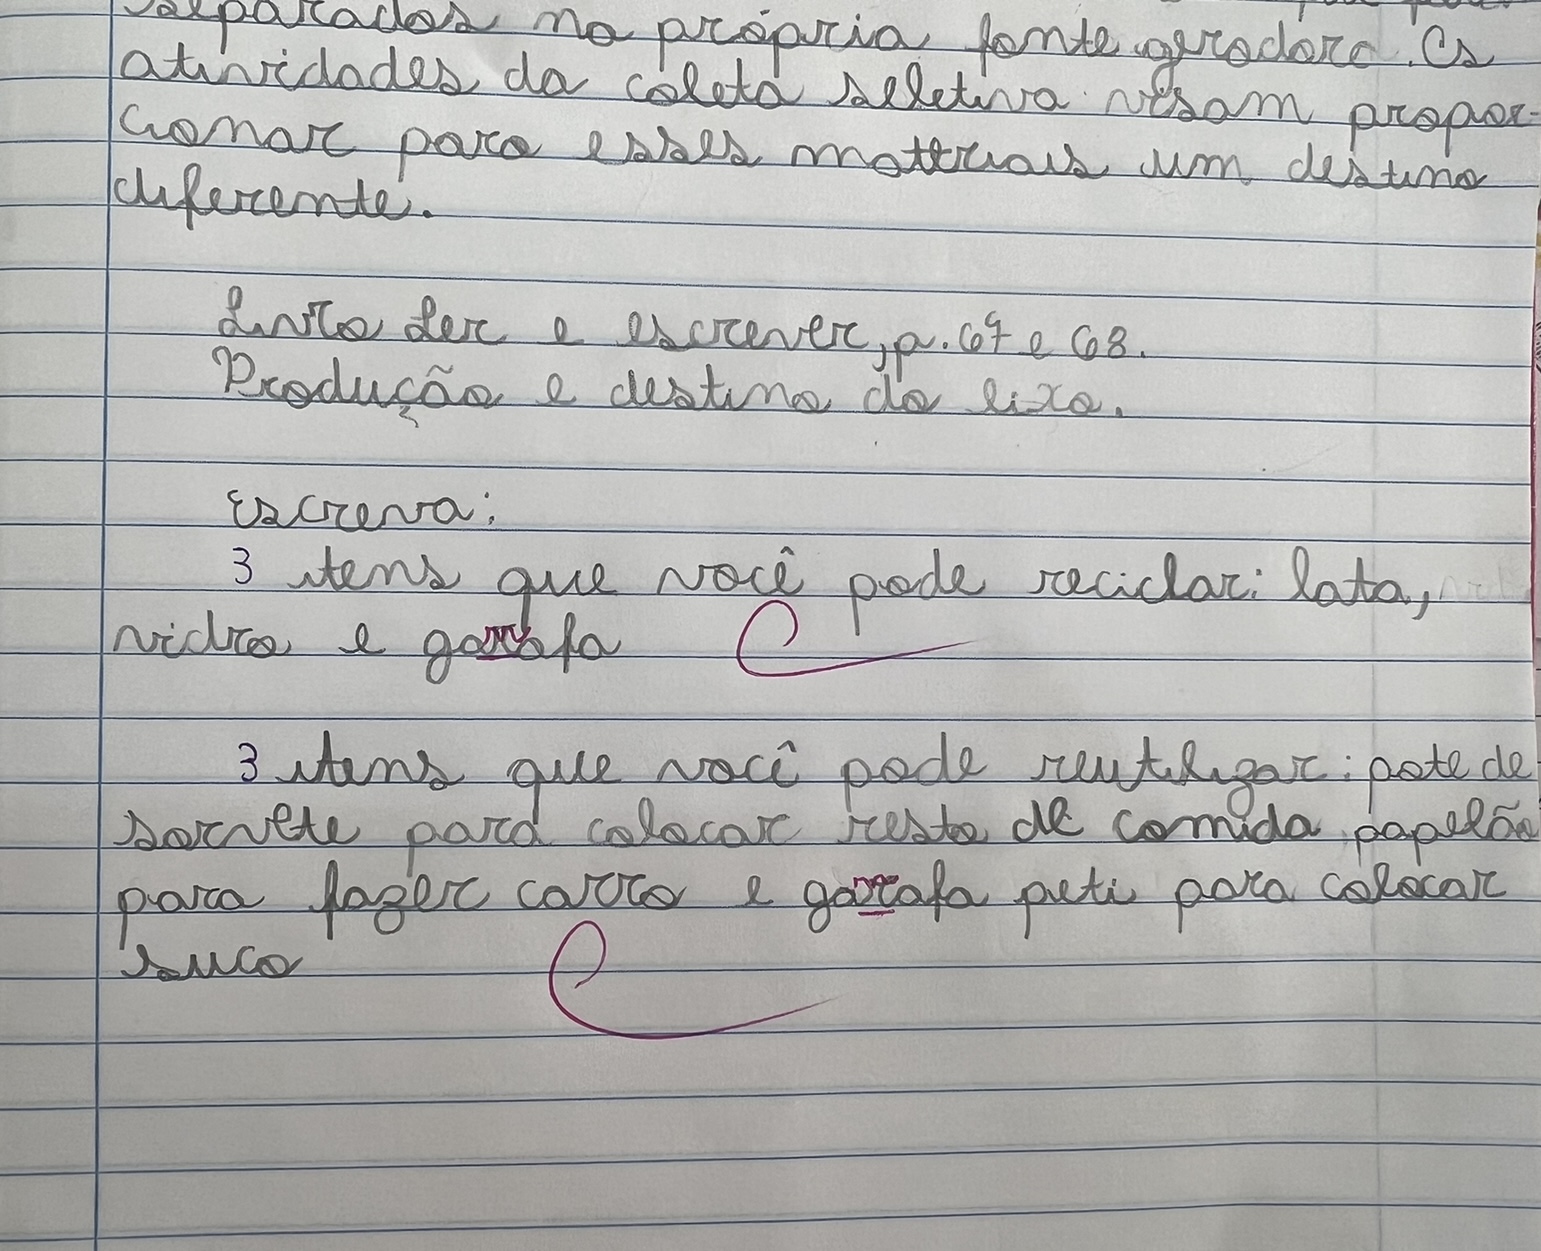 separados na própria fonte geradora. As
atividades da coleta seletiva visam propor-
cionar para esses materiais um destino
diferente.
Livro Ler e escrever, p. 67 e 68.
Produção e destino do lixo.
Escreva:
3 itens que você pode reciclar: lata,
vidro e garrafa
3 itens que você pode reutilizar: pote de
sorvete para colocar resto de comida, papelão
para fazer carro e garrafa peti para colocar
suco